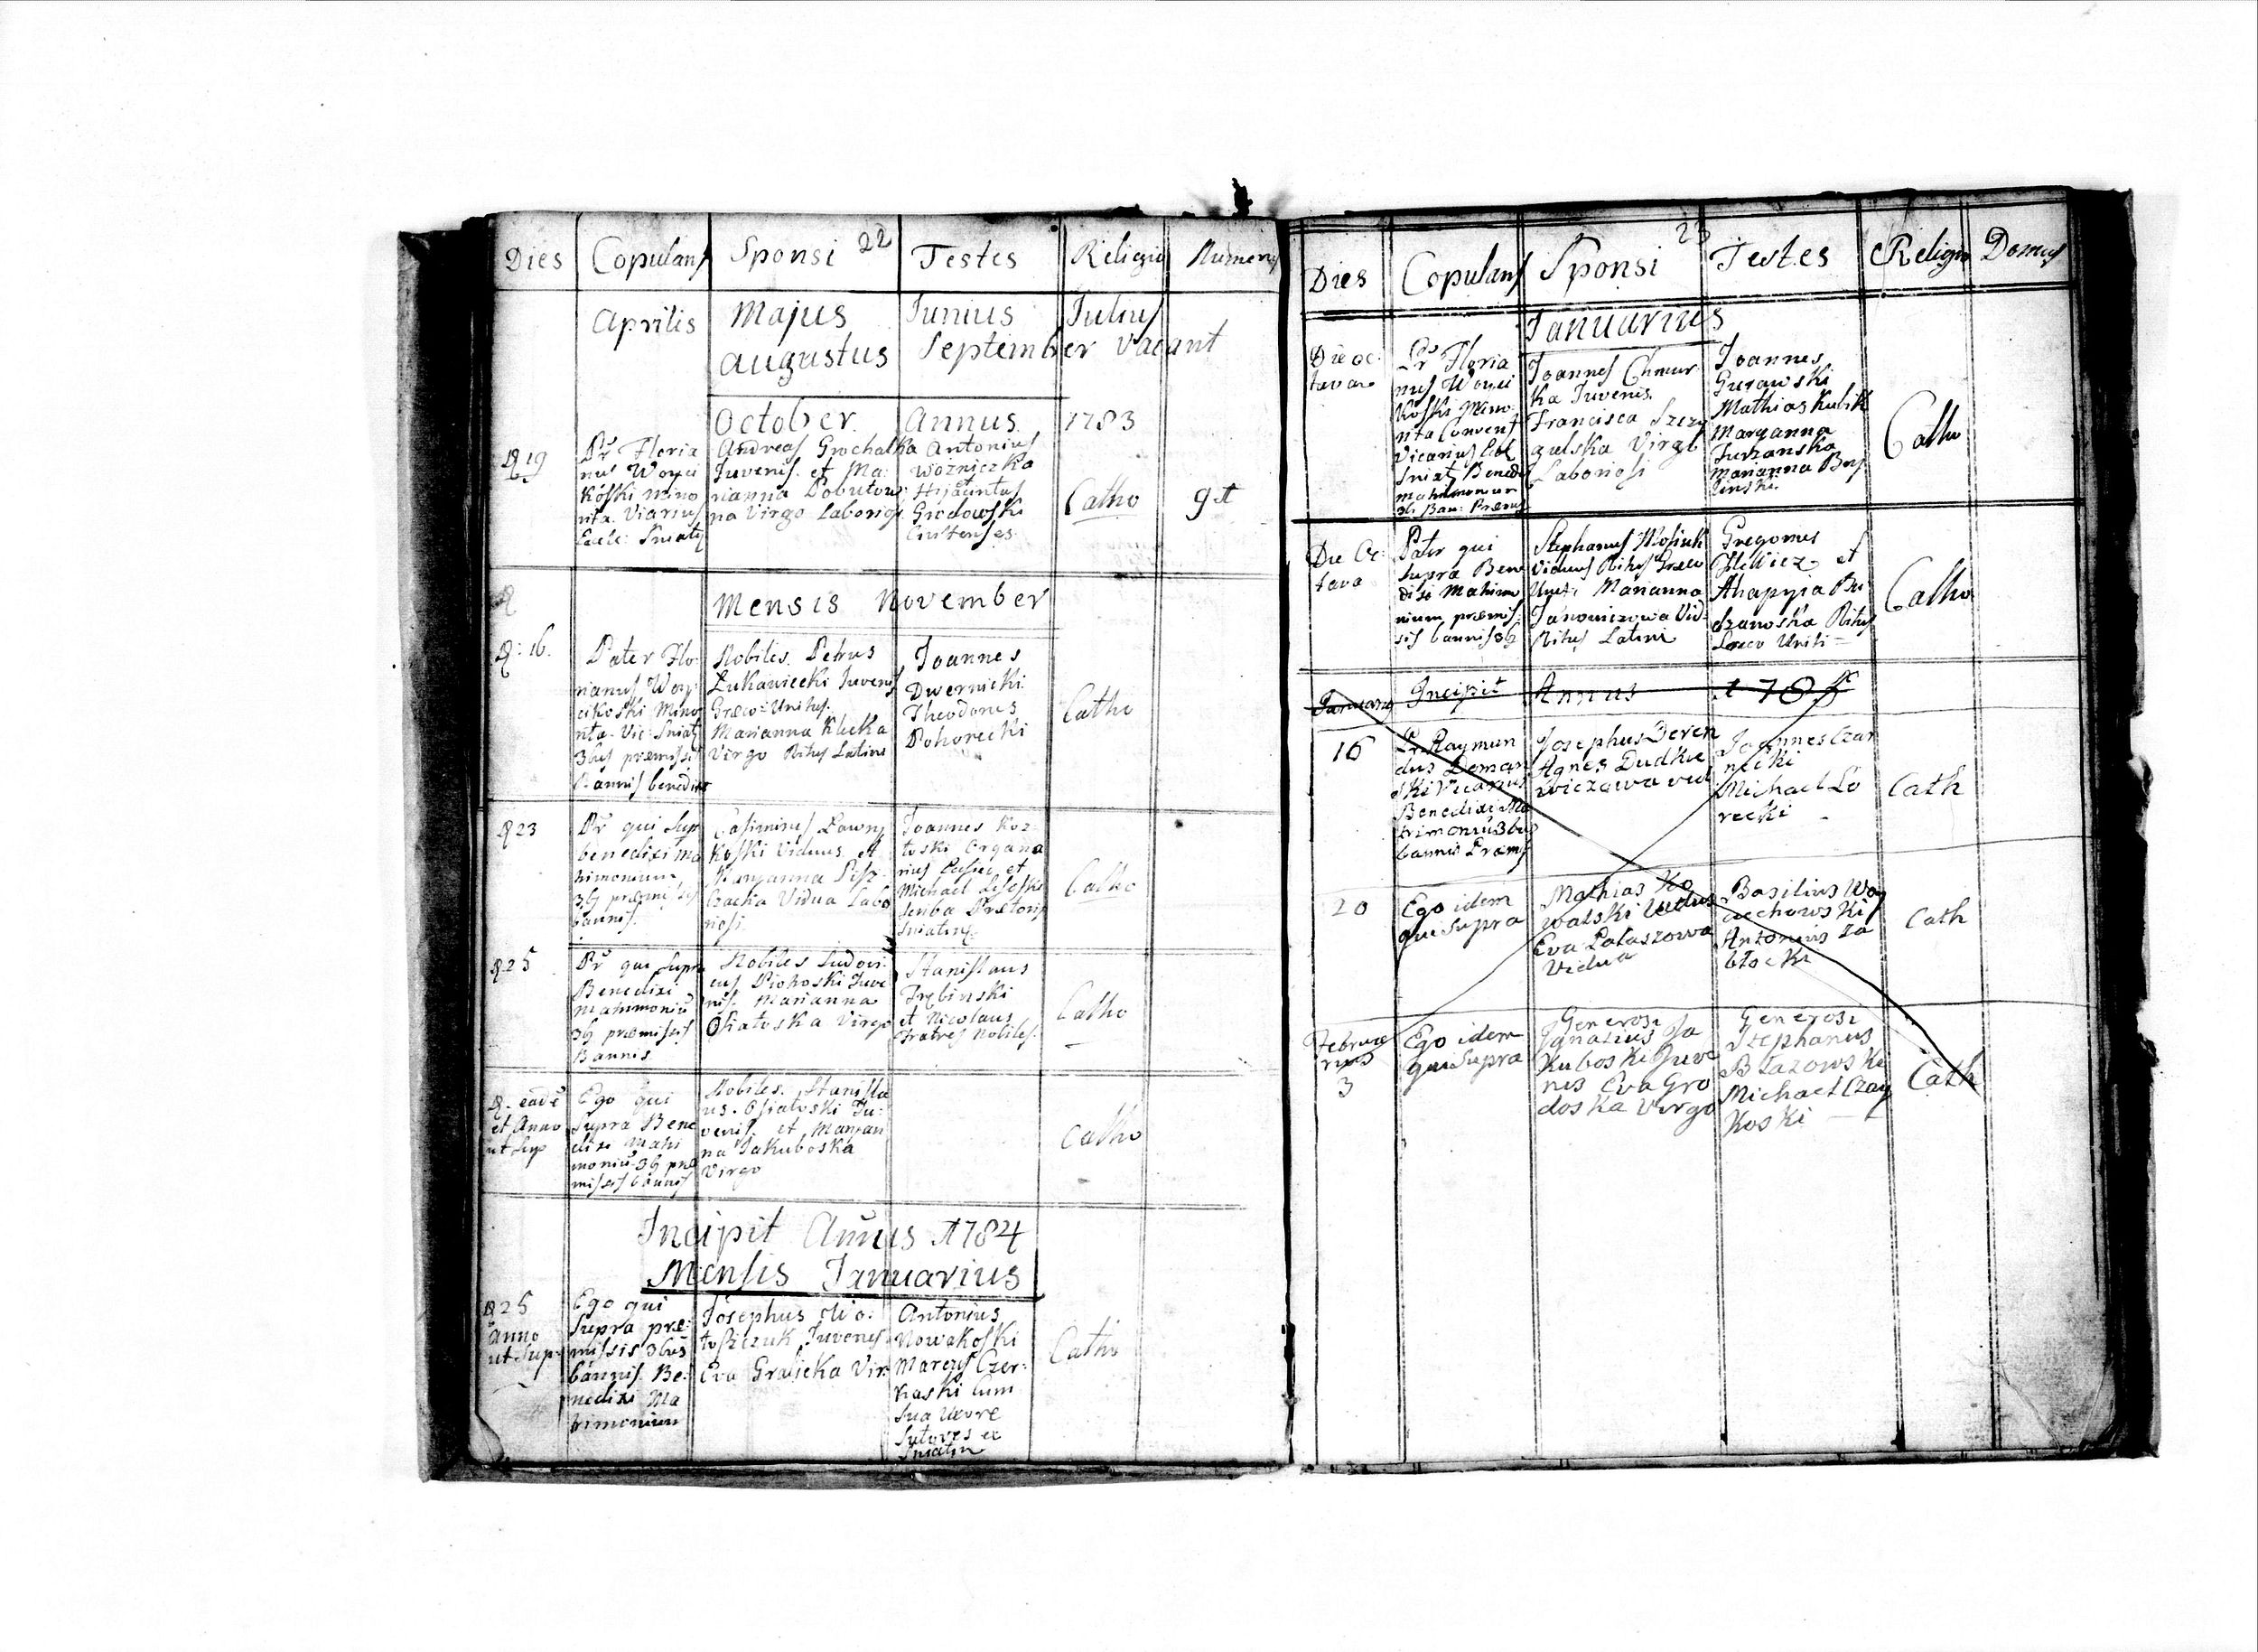 22
Dies Copulans Sponsi Testes Religio Numerus
Aprilis Majus Junius Julius
Augustus September vacant
October. Annus. 1783
D 19
Pr Floria
nus Woyci
koski mino
rita. Viarius
Eccle: Sniaty
Andreas Grochalka
Juvenis. et Ma:
rianna Dobutow:
na Virgo Laborios
Antonius
Wozniczka
et
Hyacintus
Grodowski
Catho
Mensis November
D: 16.
Pater Flo:
rianus Woy:
cikoski Mino
rita. Vic: Sniat
3bus præmissis
Bannis benedixi
Nobiles. Petrus
Łukawiecki Juvenis
Græco-Unitus.
Marianna Klecka
Virgo Ritus Latini
Joannes
Dwernicki
Theodorus
Pohorecki
Catho
D 23
Pr qui sup
benedixi ma
trimonium
3b præmissis
bannis.
Casimirus Lawry
koski Viduus et
Maryanna
Vidua Labo
riosi.
Joannes Koz
toski Organa
rius et
Michael
scriba Prætorij
Sniatin
Catho
D 25
Pr qui supra
Benedixi
matrimoniū
3b præmissis
Bannis
Nobiles Ludovi:
cus Piohoski Juve
nis. Marianna
Osiatoska Virgo
Stanislaus
Trębinski
et Nicolaus
Fratres Nobiles.
Catho
D. eadē
et Anno
ut sup
Ego qui
supra Bene
dixi matri
moniū 3b præ
missis bannis
Nobiles. Stanisla
us. Osiatoski Ju:
venis. et Maryan
na Jakuboska
Virgo
Catho
Incipit Annus 1784
Mensis Januarius
D 25
Anno
ut sup:
Ego qui
supra præ:
missis 3bus
bannis. Be:
nedixi Ma
trimonium
Josephus Wo:
toszczuk Juvenis
Eva Gralicka Vir:
Antonius
Nowakoski
Marcus Czer:
kaski cum
sua Uxore
Sutores ex
Sniatin
Catho
23
Dies Copulans Sponsi Testes Religio Domus
Januarius
Die oc:
tava
Pr Floria
nus Woyci
koski Mino
rita Convent
Vicarius Ecl
Sniat Bened
matrimonium
3b Ban: Præmis
Joannes Chmur
ka Juvenis.
Francisca Szczy
gulska Virgo
Laboriosi
Joannes
Gurawski
Mathias Kubik
Maryanna
Jurzanska
Marianna Bus
linski.
Catho
Die Oc:
tava
Pater qui
supra Bene
dixi Matrimo
nium præmis:
sis bannis 3b
Stephanus
Viduus Ritus Græco
Uniti Marianna
Janowiczowa Vid:
Ritus Latini
Gregorius
Ilkiewicz et
Ahapyia
Ritus
Græco Uniti
Catho
Januarius Incipit Annus 178
16
Pr. Raymun
dus Doman
ski Vicarius
Benedixi Ma
trimoniū 3bus
bannis Præmis
Josephus Beren
Agnes Dudkie
wiczowa vid
Joannes Czar
necki
Michael Lo
recki
Cath
20
Ego idem
qui supra
Mathias Ko
walski Viduus
Eva Palaszowa
Vidua
Basilius Woy
ciechowski
Antonius Za
błocki
Cath
Februa
rius
3
Ego idem
qui supra
Generosi
Ignatius Ja
kuboski Juve
nis Eva Gro
doska Virgo
Generosi
Stephanus
Błazowski
Michael Czay
koski
Cath